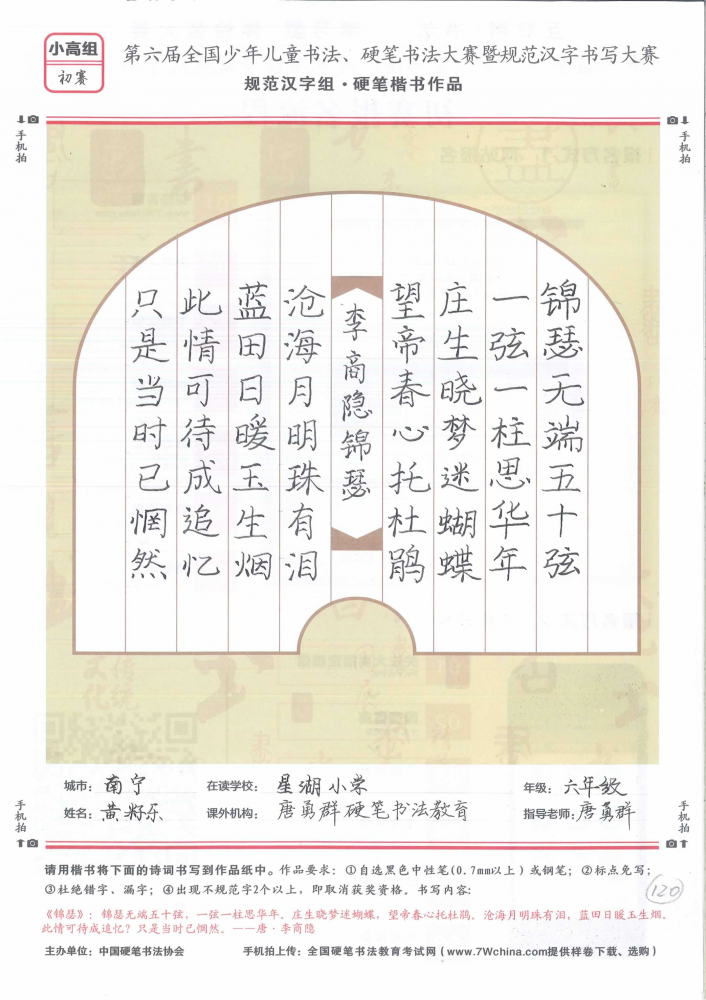 小高组
初赛
第六届全国少年儿童书法、硬笔书法大赛暨规范汉字书写大赛
规范汉字组·硬笔楷书作品
手机拍
手机拍
锦瑟无端五十弦
一弦一柱思华年
庄生晓梦迷蝴蝶
望帝春心托杜鹃
李商隐锦瑟
沧海月明珠有泪
蓝田日暖玉生烟
此情可待成追忆
只是当时已惘然
城市：南宁 在读学校：星湖小学 年级：六年级
姓名：黄籽乐 课外机构：唐勇群硬笔书法教育 指导老师：唐勇群
手机拍
手机拍
请用楷书将下面的诗词书写到作品纸中。作品要求：①自选黑色中性笔(0.7mm以上)或钢笔；②标点免写；
③杜绝错字、漏字；④出现不规范字2个以上，即取消获奖资格。书写内容：
120
《锦瑟》：锦瑟无端五十弦，一弦一柱思华年。庄生晓梦迷蝴蝶，望帝春心托杜鹃。沧海月明珠有泪，蓝田日暖玉生烟。
此情可待成追忆？只是当时已惘然。——唐·李商隐
主办单位：中国硬笔书法协会 手机拍上传：全国硬笔书法教育考试网（www.7Wchina.com提供样卷下载、选购）